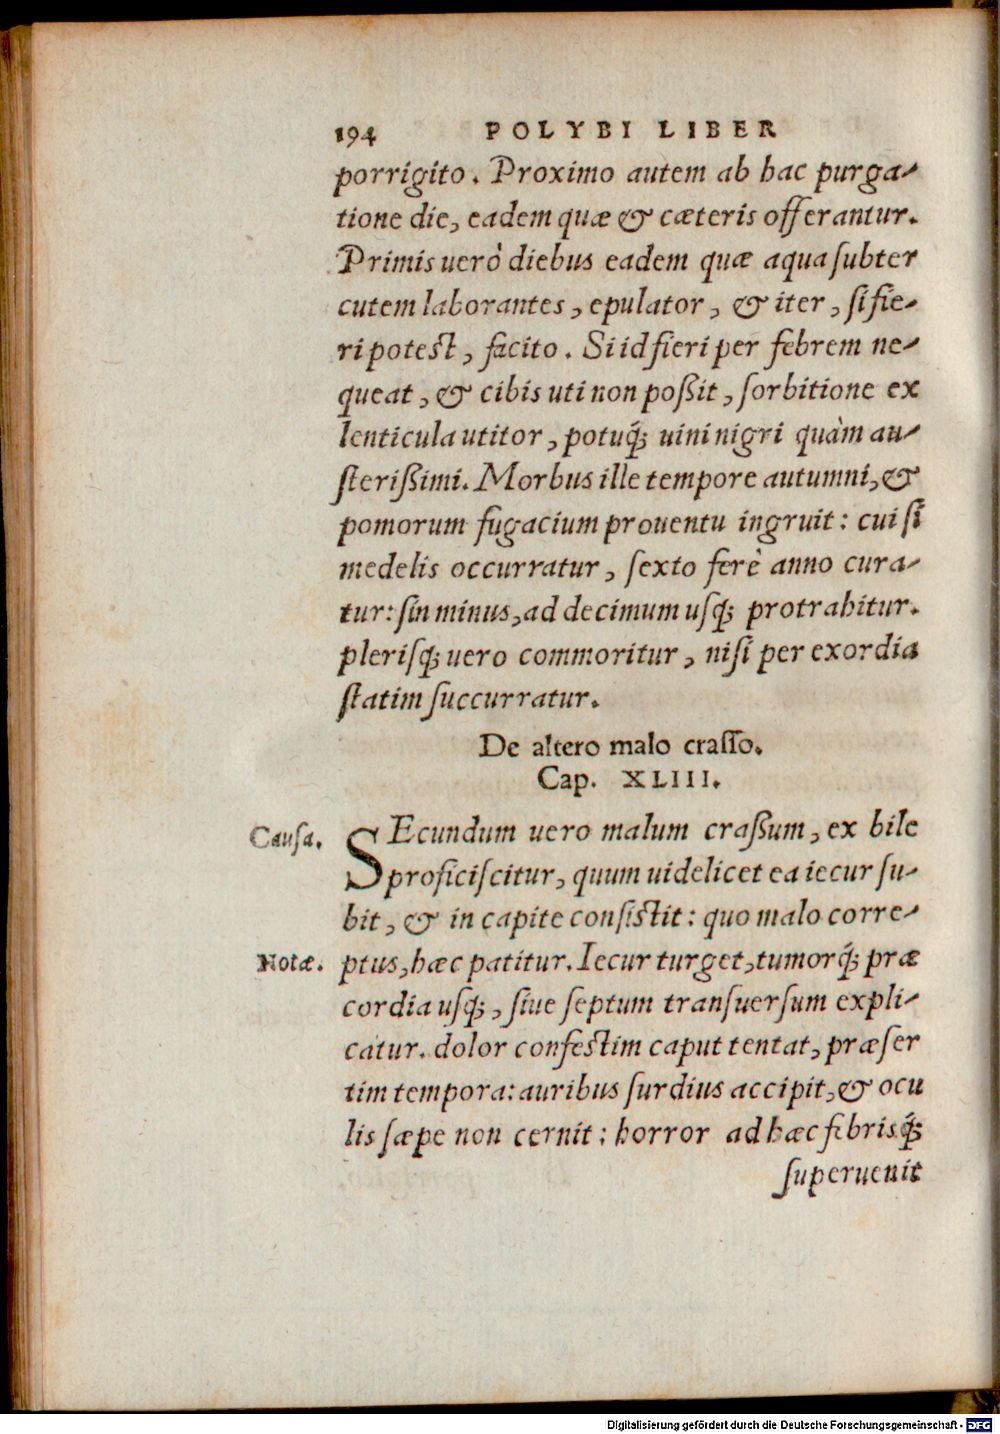 194 POLYBI LIBER
porrigito. Proximo autem ab hac purga-
tione die, eadem quæ & cæteris offerantur.
Primis uerò diebus eadem quæ aqua ſubter
cutem laborantes, epulator, & iter, ſi fie-
ri poteſt, facito. Si id fieri per febrem ne-
queat, & cibis uti non poßit, ſorbitione ex
lenticula utitor, potuq́; uini nigri quàm au-
ſterißimi. Morbus ille tempore autumni, &
pomorum fugacium prouentu ingruit: cui ſi
medelis occurratur, ſexto ferè anno cura-
tur: ſin minus, ad decimum uſq; protrahitur.
pleriſq; uero commoritur, niſi per exordia
ſtatim ſuccurratur.
De altero malo craſſo.
Cap. XLIII.
Cauſa. SEcundum uero malum craßum, ex bile
proficiſcitur, quum uidelicet ea iecur ſu-
bit, & in capite conſiſtit: quo malo corre-
Notæ. ptus, hæc patitur. Iecur turget, tumorq́; præ
cordia uſq;, ſiue ſeptum tranſuerſum expli-
catur. dolor confeſtim caput tentat, præſer
tim tempora: auribus ſurdius accipit, & ocu
lis ſæpe non cernit: horror ad hæc febrisq́;
ſuperuenit
Digitalisierung gefördert durch die Deutsche Forschungsgemeinschaft - DFG